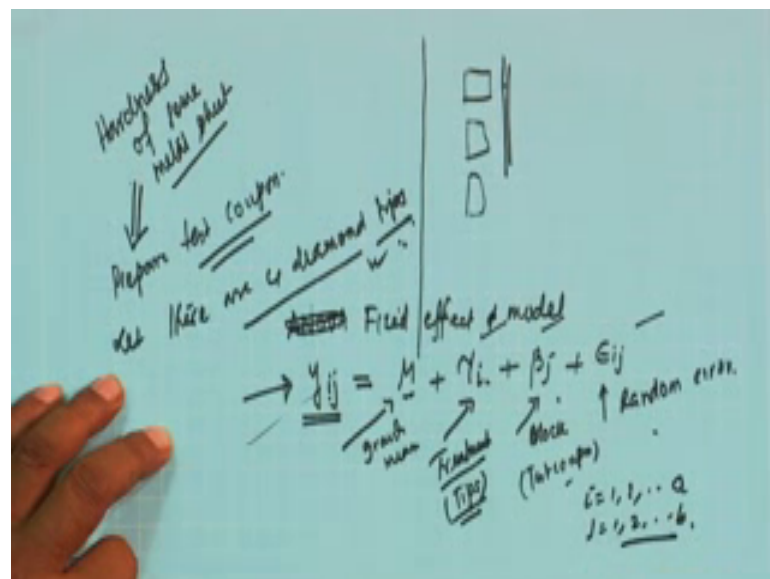 Hardness
of some
metal sheet
Prepare test coupon.
Let there are 4 diamond tips
Fixed effect model
y_ij = μ + τ_i + β_j + ε_ij
grand mean
Treatment
(Tips)
Block
(Testcoupon)
Random error.
i=1, 2, .. a
j=1, 2, .. b.